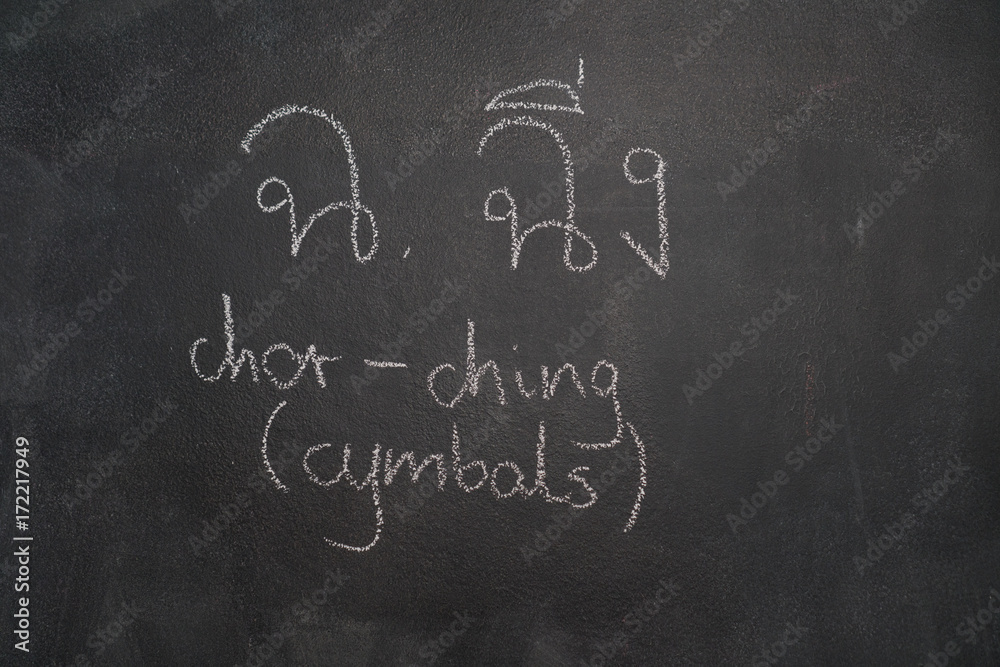 ฉ. ฉิ่ง
chor - ching
(cymbals)
Adobe Stock | #172217949